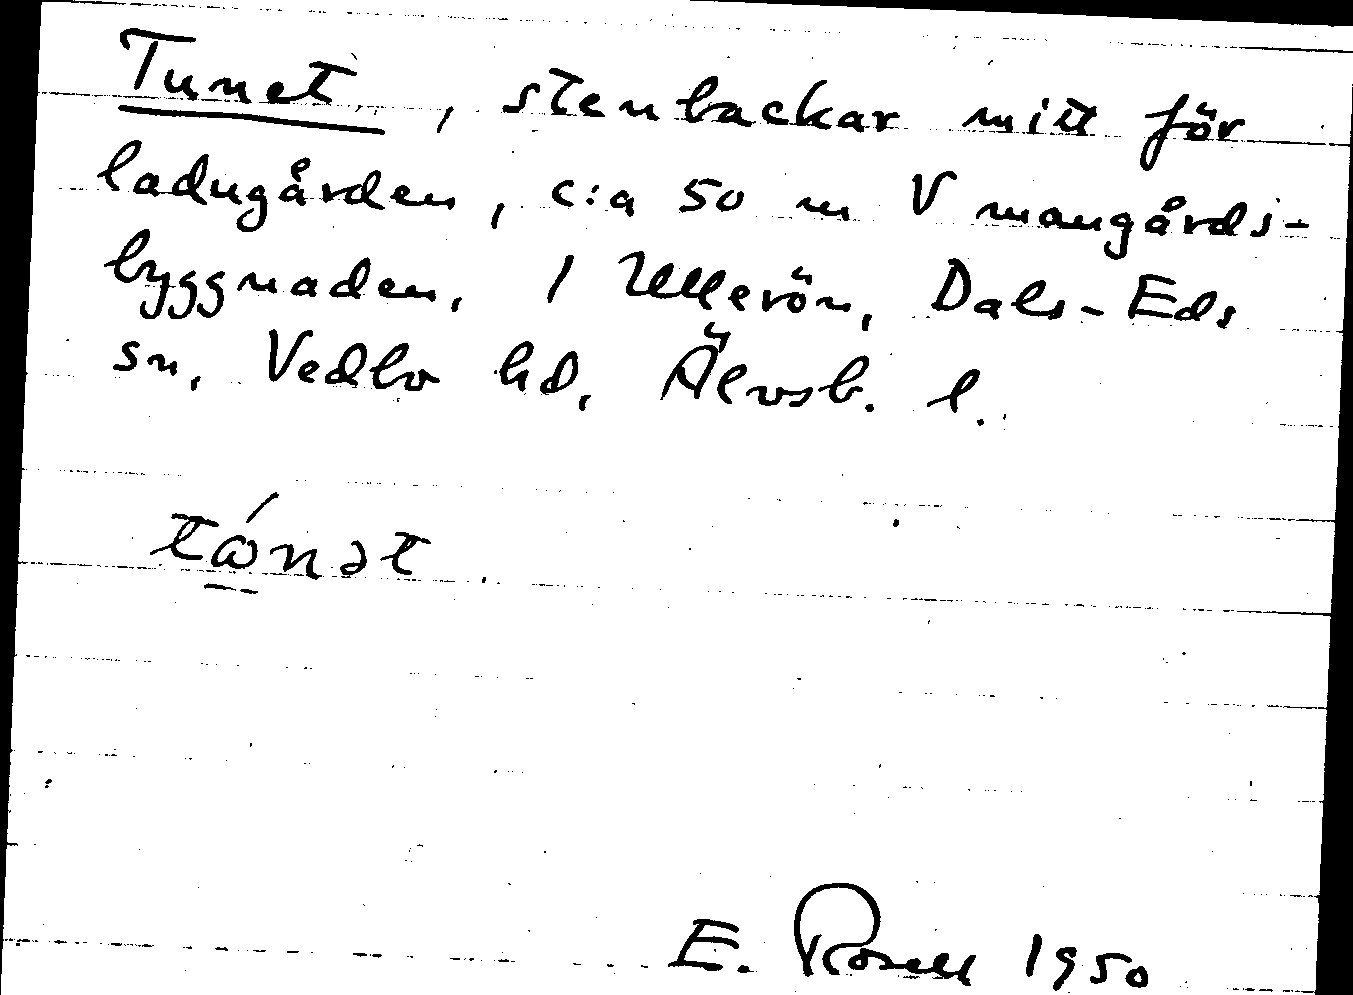 Tunet, stenbackar mitt för
ladugården, c:a 50 m V mangårds-
byggnaden, 1 Ullerön, Dals-Eds
sn, Vedbo hd, Älvsb. l.
tώnət
E. Rosell 1950